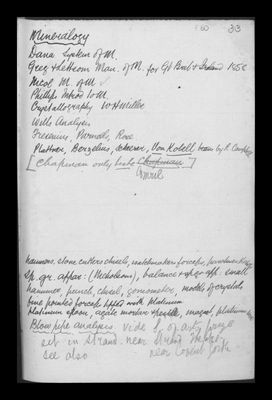 60 33
Mineralogy
Dana System of M.
Greg & Lettsom Man. of M. for Gt Brit & Ireland 1858
Nicol M. of M
Phillips Introd to M.
Crystallography W H Miller
Wills Analysis
Fresenius, Parnell, Rose
Plattner, Berzelius, Scheerer, Von Kobell trans by R. Campbell
[Chapman only tests Chapman]
hammers, stone cutters chisels, watchmakers forceps,
Sp. gr. appar: (Nicholsons), balance & sp. gr. app. small
hammer, punch, chisel, goniometer, models of crystals
fine pointed forceps tipped with platinum
platinum spoon, agate mortar & pestle, magnet, platinum
Blow pipe analysis. vide
set in Strand. near
see also near Covent